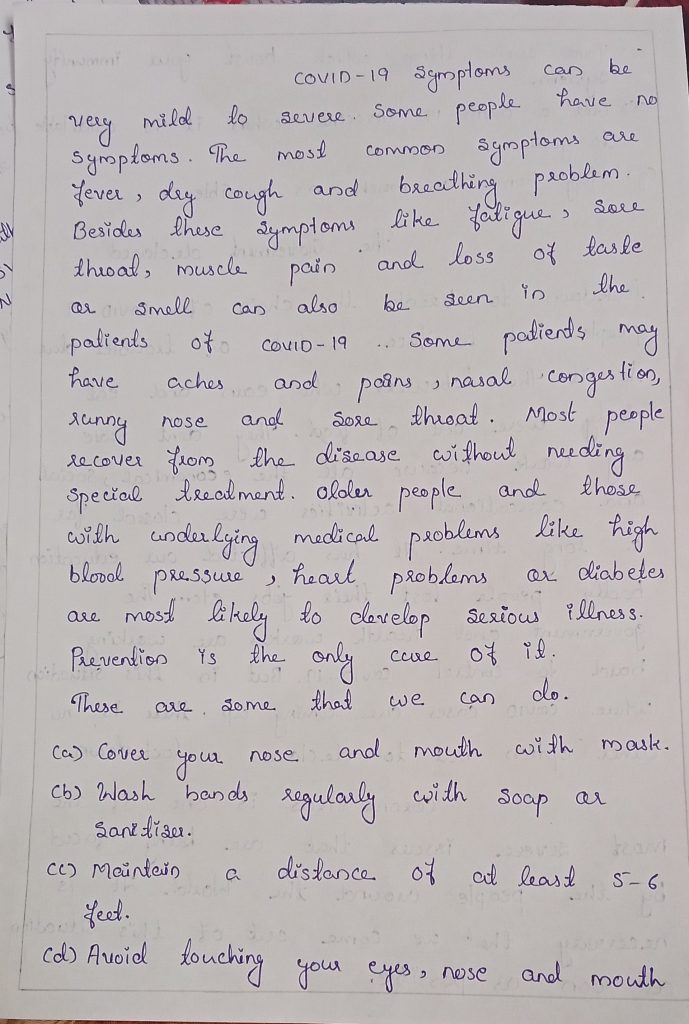 COVID-19 symptoms can be
very mild to severe. Some people have no
symptoms. The most common symptoms are
fever, dry cough and breathing problem.
Besides these symptoms like fatigue, sore
throat, muscle pain and loss of taste
or smell can also be seen in the
patients of COVID-19 .. Some patients may
have aches and pains, nasal congestion,
runny nose and sore throat. Most people
recover from the disease without needing
special treatment. Older people and those
with underlying medical problems like high
blood pressure, heart problems or diabetes
are most likely to develop serious illness.
Prevention is the only cure of it.
These are some that we can do.
(a) Cover your nose and mouth with mask.
(b) Wash hands regularly with soap or
sanitiser.
(c) Maintain a distance of at least 5-6
feet.
(d) Avoid touching your eyes, nose and mouth